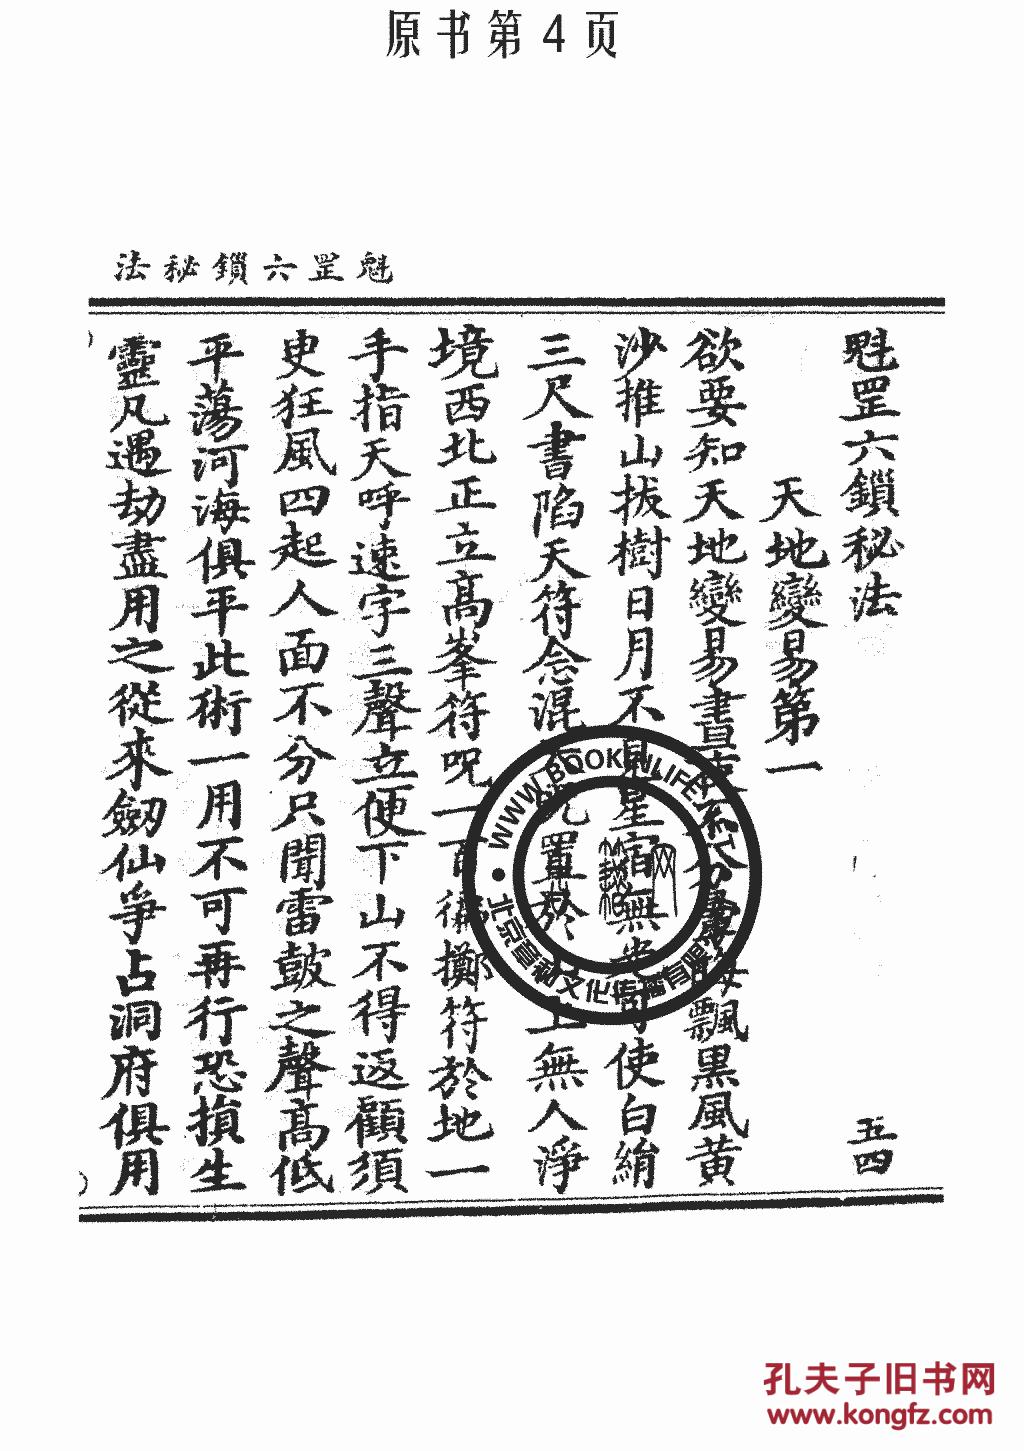 原书第4页
魁罡六鎖秘法
魁罡六鎖秘法 五四
天地變易第一
欲要知天地變易晝 海飄黑風黃
沙推山拔樹日月不見星宿無 可使白絹
三尺書陷天符念混 咒置於 上無人淨
境西北正立高峯符呪一百 擲符於地一
手指天呼速字三聲立便下山不得返顧須
史狂風四起人面不分只聞雷鼓之聲高低
平蕩河海俱平此術一用不可再行恐損生
靈凡遇劫盡用之從來劔仙爭占洞府俱用
WWW.BOOKINLIFE.
北京 文化传播有限
孔夫子旧书网
www.kongfz.com